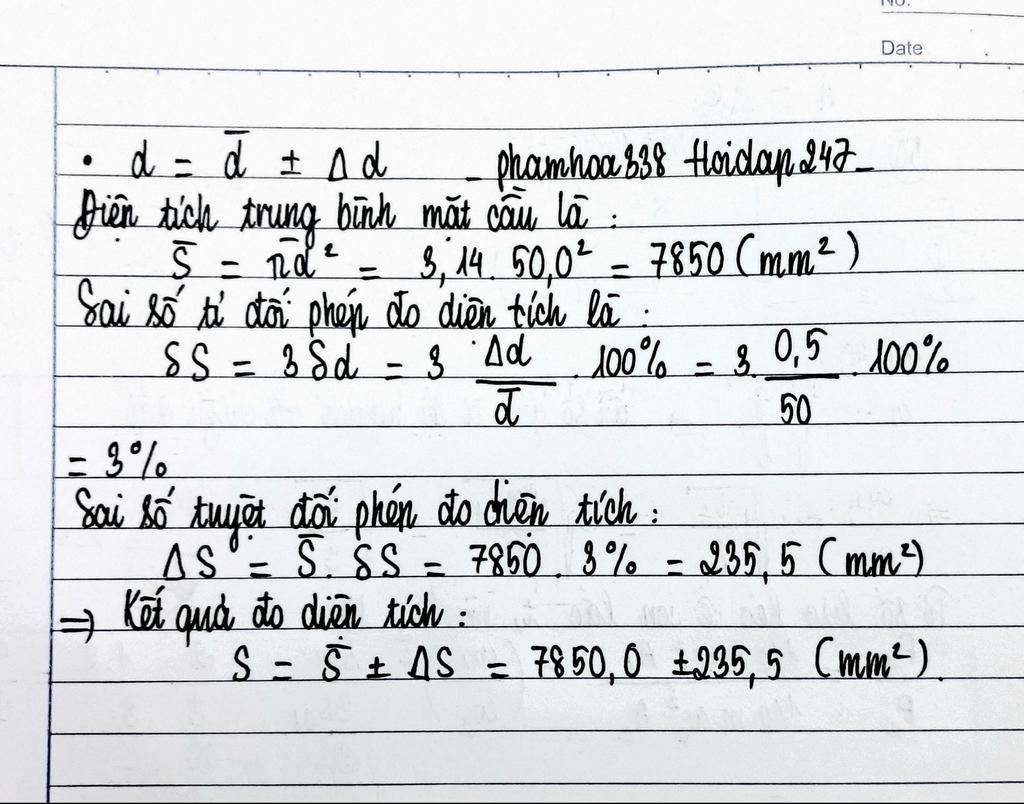 No.
Date
• d = d̅ ± Δd – phamhoa338 Hoidap247–
Diện tích trung bình mặt cầu là :
S̅ = πd̅² = 3,14. 50,0² = 7850 (mm²)
Sai số tỉ đối phép đo diện tích là :
δS = 3δd = 3 Δd/d̅ . 100% = 3. 0,5/50 . 100%
= 3%
Sai số tuyệt đối phép đo diện tích :
ΔS = S̅. δS = 7850 . 3% = 235,5 (mm²)
⇒ Kết quả đo diện tích :
S = S̅ ± ΔS = 7850,0 ±235,5 (mm²).